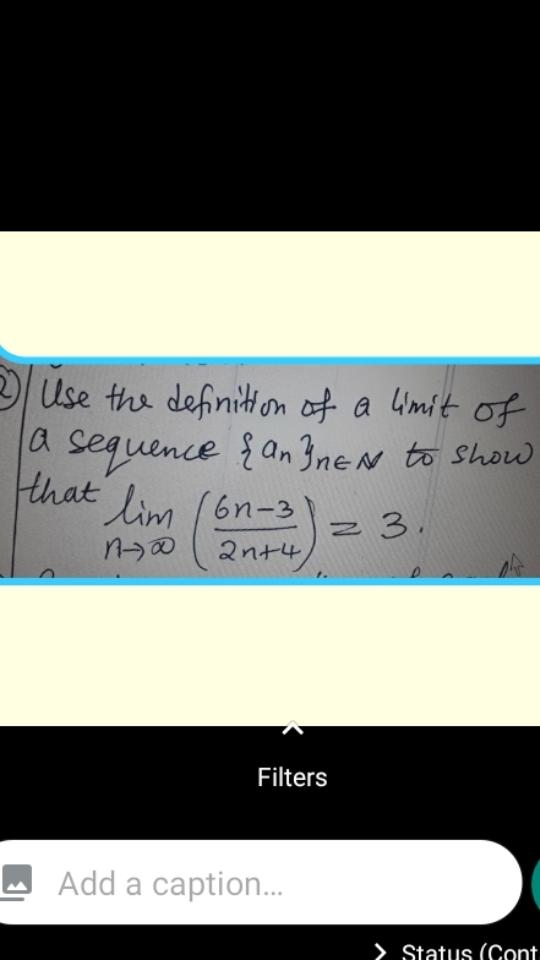 2) Use the definition of a limit of
a sequence {an}n∈N to show
that lim n→∞ (6n-3/2n+4) = 3.
Filters
Add a caption...
Status (Cont